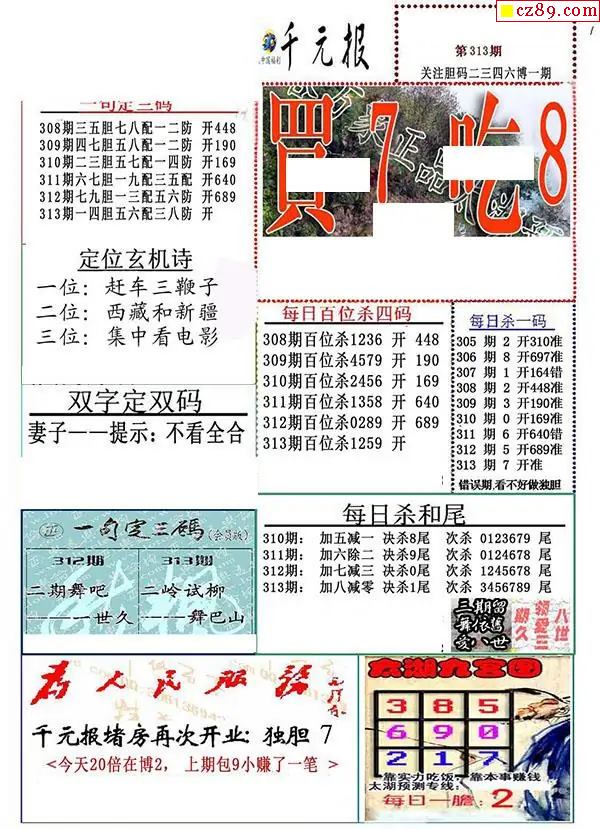 cz89.com
千元报
第313期
关注胆码二三四六博一期
一句定三码
308期三五胆七八配一二防 开448
309期四七胆五八配一二防 开190
310期二三胆五七配一四防 开169
311期六七胆一九配三五配 开640
312期七九胆一三配五六防 开689
313期一四胆五六配三八防 开
買7吃8
定位玄机诗
一位：赶车三鞭子
二位：西藏和新疆
三位：集中看电影
每日百位杀四码
308期百位杀1236 开 448
309期百位杀4579 开 190
310期百位杀2456 开 169
311期百位杀1358 开 640
312期百位杀0289 开 689
313期百位杀1259 开
每日杀一码
305 期 2 开310准
306 期 8 开697准
307 期 1 开164错
308 期 2 开448准
309 期 3 开190准
310 期 0 开169准
311 期 6 开640错
312 期 5 开689准
313 期 7 开准
错误期,看不好做独胆
双字定双码
妻子——提示：不看全合
每日杀和尾
310期： 加五减一 决杀8尾 次杀 0123679 尾
311期： 加六除二 决杀9尾 次杀 0124678 尾
312期： 加七减三 决杀0尾 次杀 1245678 尾
313期： 加八减零 决杀1尾 次杀 3456789 尾
一句定三碼(会员版)
312期
二期舞吧
——一世久
313期
二岭试柳
——舞巴山
三期留
舞依舊
爱八世
为人民服务
千元报堵房再次开业：独胆 7
<今天20倍在博2， 上期包9小赚了一笔 >
太湖九宫图
3 8 5
6 9 0
2 1 7
靠实力吃饭，靠本事赚钱
太湖预测专线：
每日一胆：2